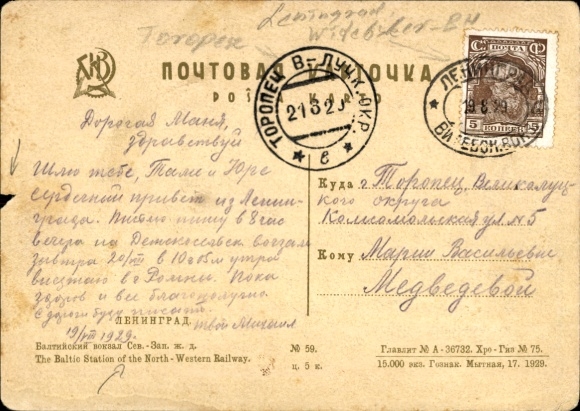 Leningrad
Witebsker-BH
Toropez
ПОЧТОВАЯ КАРТОЧКА
POŜTA KARTO
С ПОЧТА Ф
5 КОПЕЕК 5
ЛЕНИНГРАД
19.8.29
ВИТЕБСК.ВОК
ТОРОПЕЦ В-ЛУЧК.ОКР.
21 8 29
в
Дорогая Маня,
здравствуй
Шлю тебе, Тате и Юре
сердечный привет из Ленин-
града. Письмо пишу в 8 час
вечера на Детскосельск. вокзале
завтра 20/VIII в 10 ч 05 м утра
выезжаю в Ромны. Пока
здоров и все благополучно.
С дороги буду писать.
твой Михаил
19/VIII 1929.
Куда г. Торопец, Великолуц-
кого округа
Комсомольская ул № 5
Кому Марии Васильевне
Медведевой
ЛЕНИНГРАД.
Балтийский вокзал Сев.-Зап. ж. д.
The Baltic Station of the North-Western Railway.
№ 59.
ц. 5 к.
Главлит № А - 36732. Хро - Гиз № 75.
15.000 экз. Гознак. Мытная, 17. 1929.